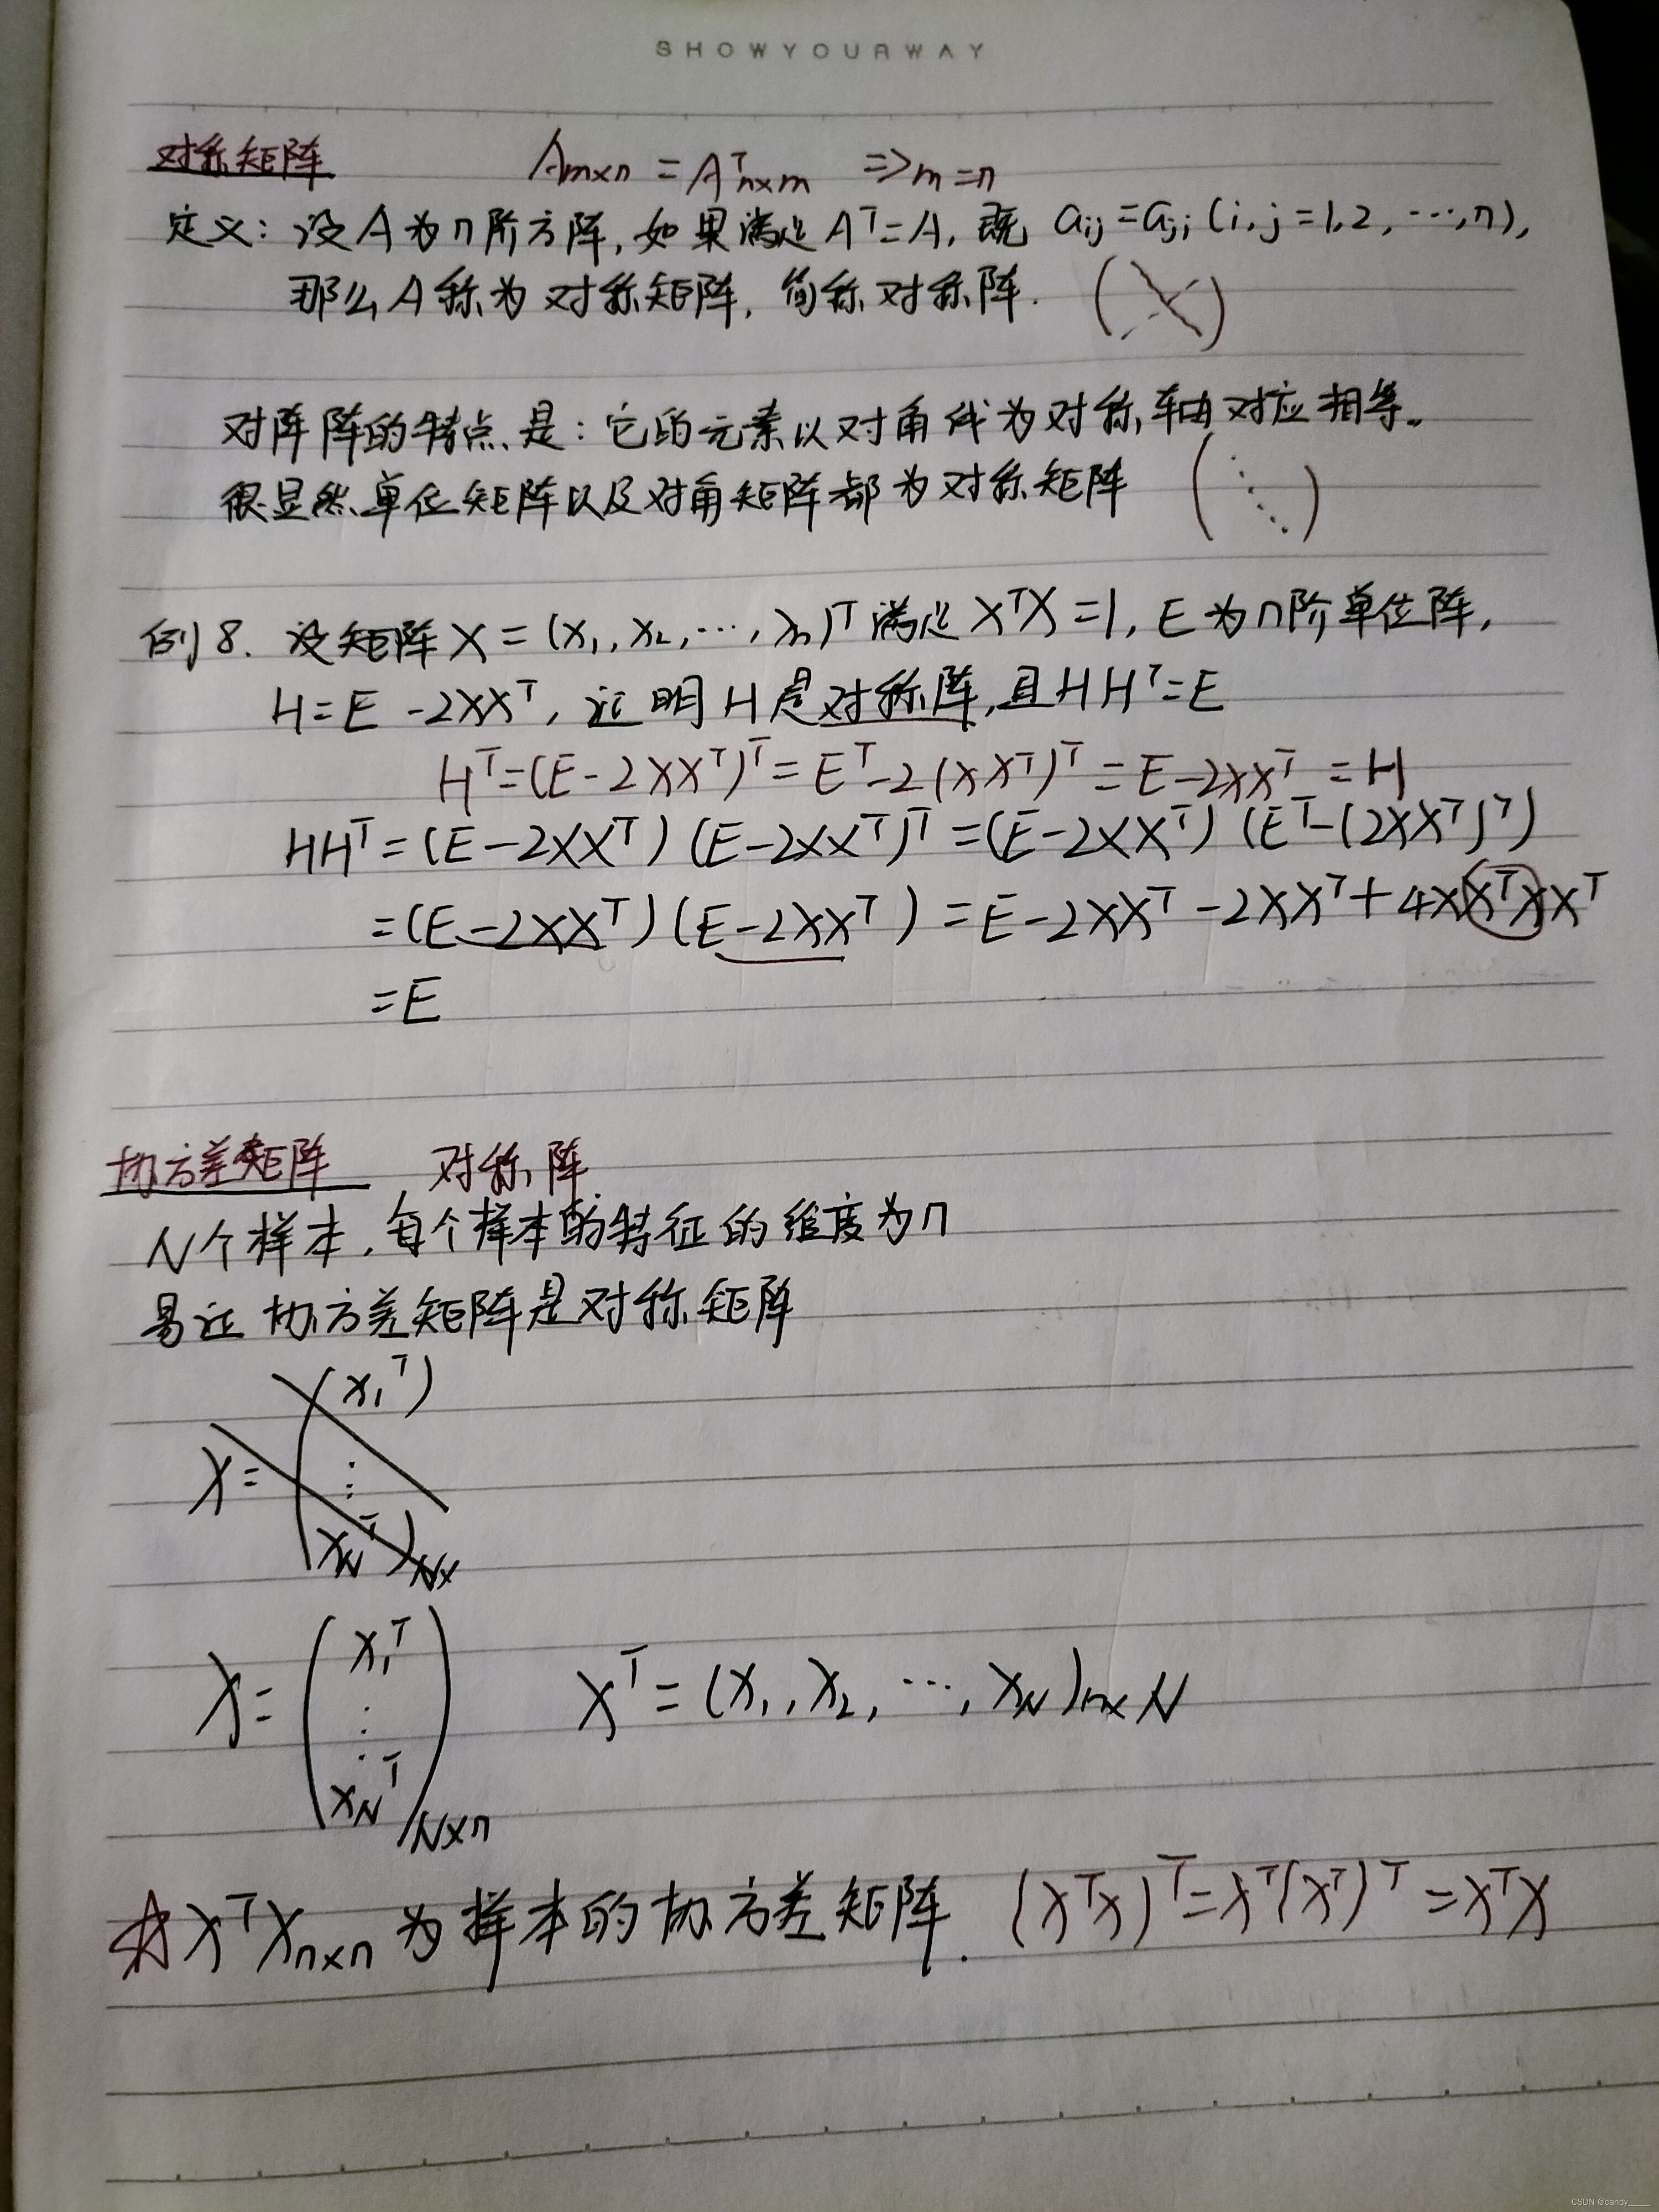 SHOWYOURWAY
对称矩阵 Aₘₓₙ = Aᵀₙₓₘ => m=n
定义：设A为n阶方阵，如果满足Aᵀ=A，既 aij=aji (i,j=1,2,…,n),
那么A称为对称矩阵，简称对称阵.
对阵阵的特点是：它的元素以对角线为对称轴对应相等。
很显然单位矩阵以及对角矩阵都为对称矩阵
例8. 设矩阵X=(x₁,x₂,…,xₙ)ᵀ满足XᵀX=1, E为n阶单位阵,
H=E-2XXᵀ, 证明H是对称阵,且HHᵀ=E
Hᵀ=(E-2XXᵀ)ᵀ=Eᵀ-2(XXᵀ)ᵀ=E-2XXᵀ=H
HHᵀ=(E-2XXᵀ)(E-2XXᵀ)ᵀ=(E-2XXᵀ)(Eᵀ-(2XXᵀ)ᵀ)
=(E-2XXᵀ)(E-2XXᵀ)=E-2XXᵀ-2XXᵀ+4XXᵀXXᵀ
=E
协方差矩阵 对称阵
N个样本,每个样本的特征的维度为n
易证协方差矩阵是对称矩阵
(x₁ᵀ)
X= ⋮
xNᵀ)Nx
x₁ᵀ
X= ⋮ Xᵀ=(x₁,x₂,…,xN)n×N
xNᵀ N×n
☆XᵀXn×n为样本的协方差矩阵. (XᵀX)ᵀ=Xᵀ(Xᵀ)ᵀ=XᵀX
CSDN @candy____